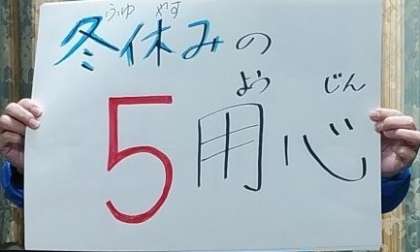 ふゆ やす
冬休みの
よう じん
5用心